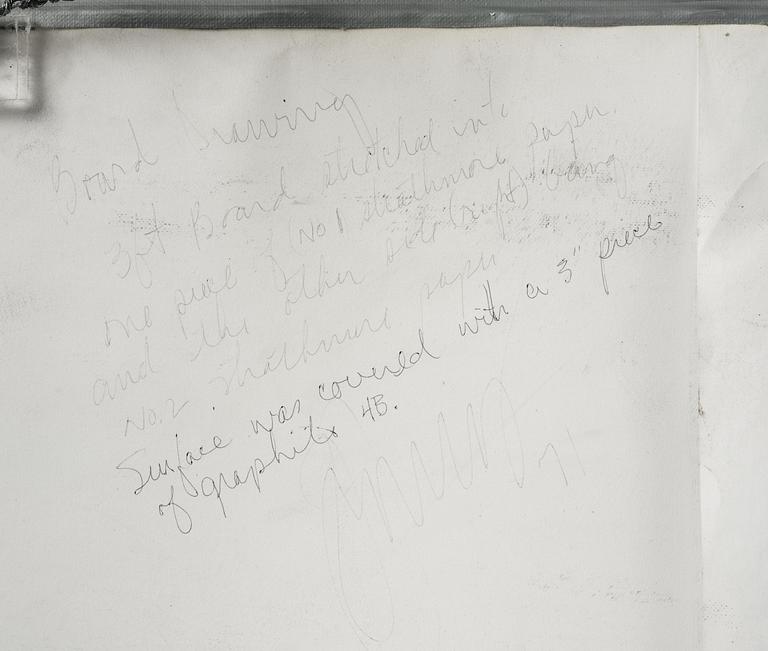 Board Drawing
3ft Board stretched into
one piece of No 1 strathmore paper.
and the other side (right) being
No. 2 Strathmore paper
Surface was covered with a 3" piece
of graphite 4B.
71